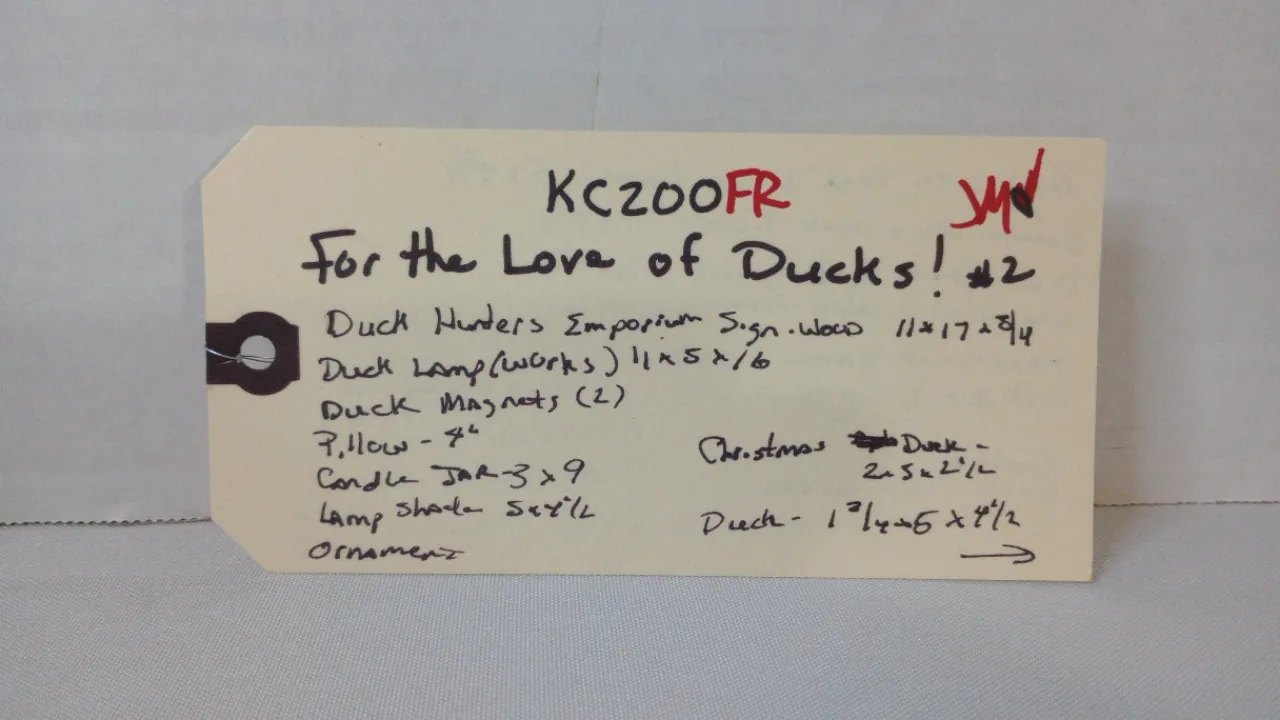 KC200FR
For the Love of Ducks! #2
Duck Hunters Emporium Sign-Wood 11x17x3/4
Duck Lamp (Works) 11x5x16
Duck Magnets (2)
Pillow - 4"
Candle JAR-3x9
Lamp Shade 5x4 1/2
Ornament
Christmas Duck -
2x5x2 1/2
Duck - 1 3/4x5x4 1/2
→